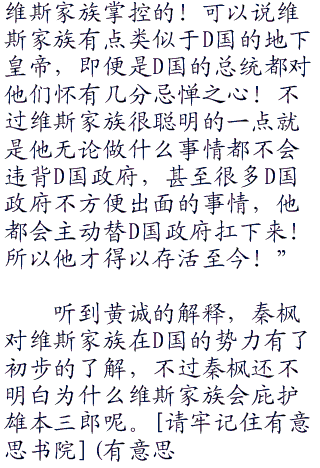 维斯家族掌控的！可以说维
斯家族有点类似于D国的地下
皇帝，即便是D国的总统都对
他们怀有几分忌惮之心！不
过维斯家族很聪明的一点就
是他无论做什么事情都不会
违背D国政府，甚至很多D国
政府不方便出面的事情，他
都会主动替D国政府扛下来！
所以他才得以存活至今！”
听到黄诚的解释，秦枫
对维斯家族在D国的势力有了
初步的了解，不过秦枫还不
明白为什么维斯家族会庇护
雄本三郎呢。[请牢记住有意
思书院](有意思